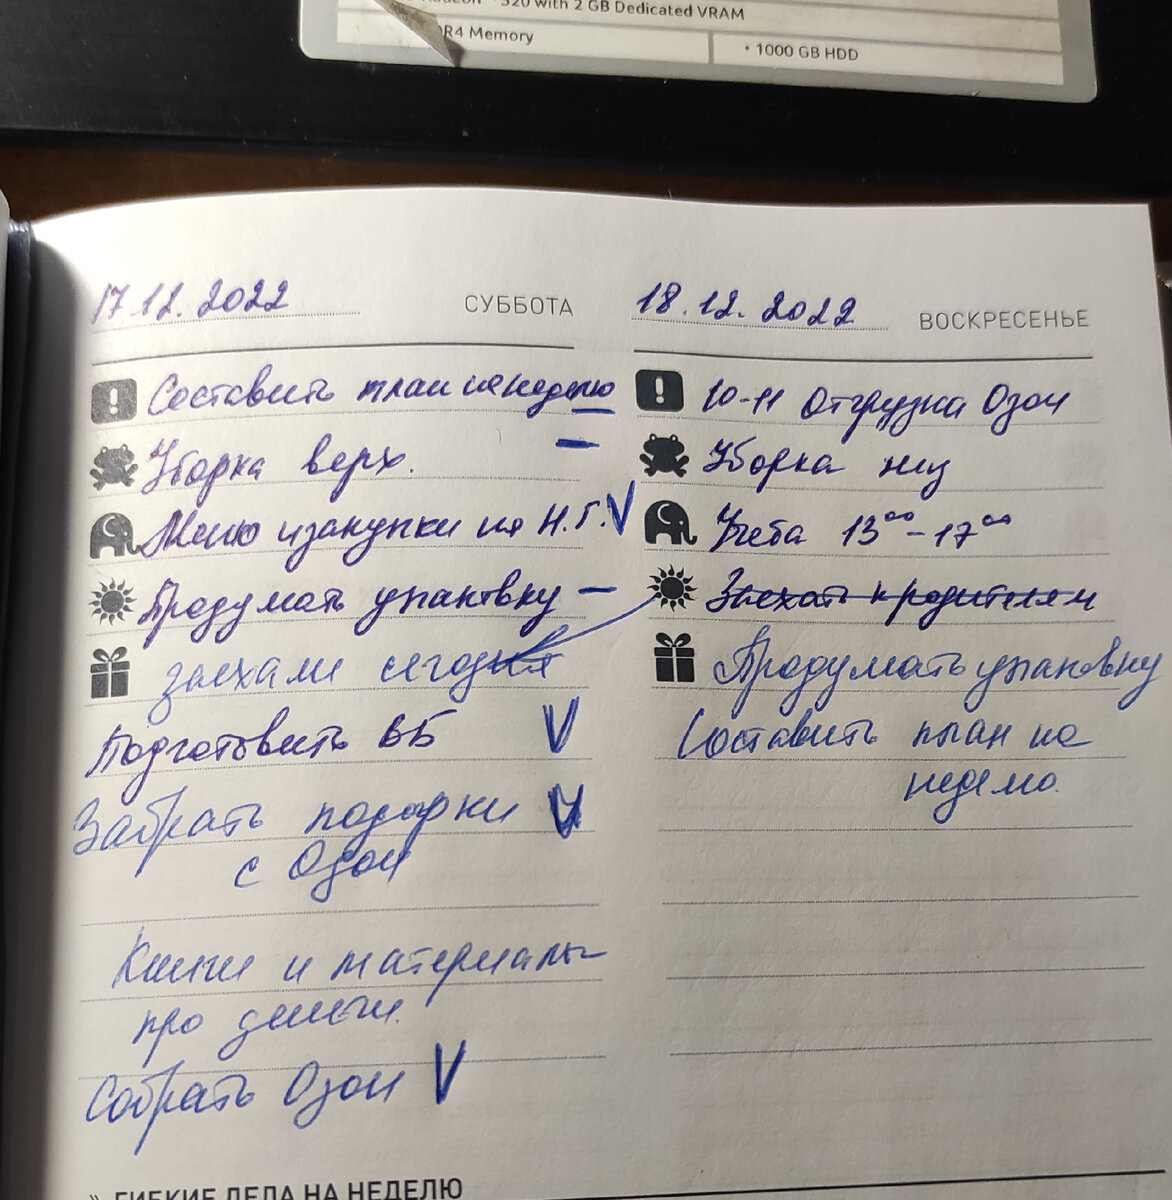 320 with 2 GB Dedicated VRAM
R4 Memory
• 1000 GB HDD
17.12.2022 СУББОТА
Составить план на неделю —
Уборка верх. —
Меню и закупки на Н.Г. V
Продумать упаковку —
заехали сегодня
Подготовить ВБ V
Забрать подарки V
с Озон
Книги и материалы
про деньги.
Собрать Озон V
» ГИБКИЕ ДЕЛА НА НЕДЕЛЮ
18.12.2022 ВОСКРЕСЕНЬЕ
10-11 Отгрузка Озон
Уборка низ
Учеба 13⁰⁰-17⁰⁰
Заехать к родителям
Продумать упаковку
Составить план на
неделю.